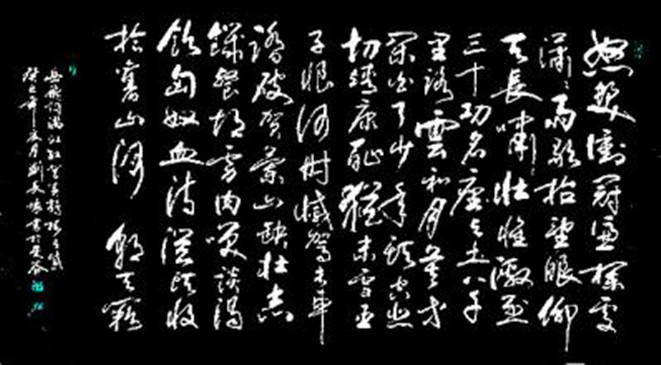 怒髮衝冠憑欄處
瀟瀟雨歇抬望眼仰
天長嘯壯懷激烈
三十功名塵與土八千
里路雲和月莫等
閑白了少年頭空悲
切靖康恥猶未雪臣
子恨何時憾駕長車
踏破賀蘭山缺壯志
饑餐胡虜肉笑談渴
飲匈奴血待從頭收
拾舊山河 朝天闕
岳飛詞滿江紅
癸巳年 月劉長 書於